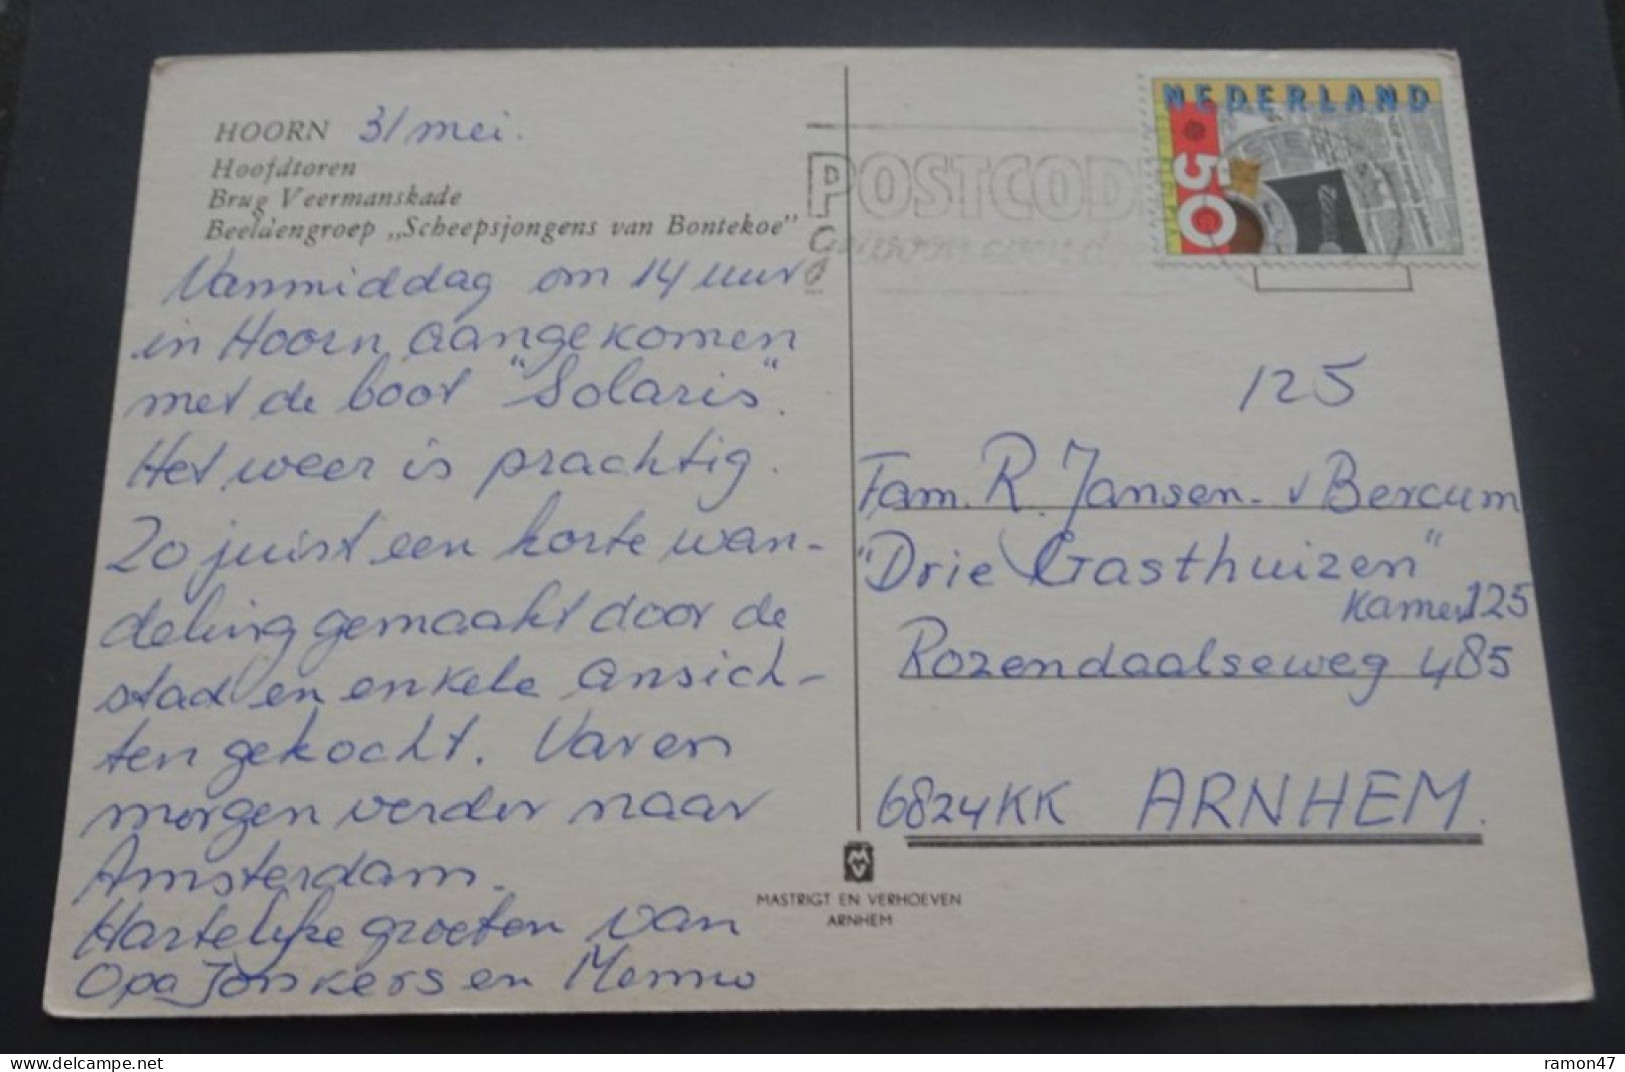 HOORN 31 mei.
Hoofdtoren
Brug Veermanskade
Beeldengroep „Scheepsjongens van Bontekoe”
Vanmiddag om 14 uur
in Hoorn aangekomen
met de boot "Solaris".
Het weer is prachtig.
Zo juist een korte wan-
deling gemaakt door de
stad en enkele ansich-
ten gekocht. Varen
morgen verder naar
Amsterdam.
Hartelijke groeten van
Opa Jonkers en Menno
POSTCOD
NEDERLAND
50
125
Fam. R. Jansen - v Bercum
"Drie Gasthuizen"
Kamer 125
Rozendaalseweg 485
6824KK ARNHEM.
MASTRIGT EN VERHOEVEN
ARNHEM
delcampe.net
ramon47